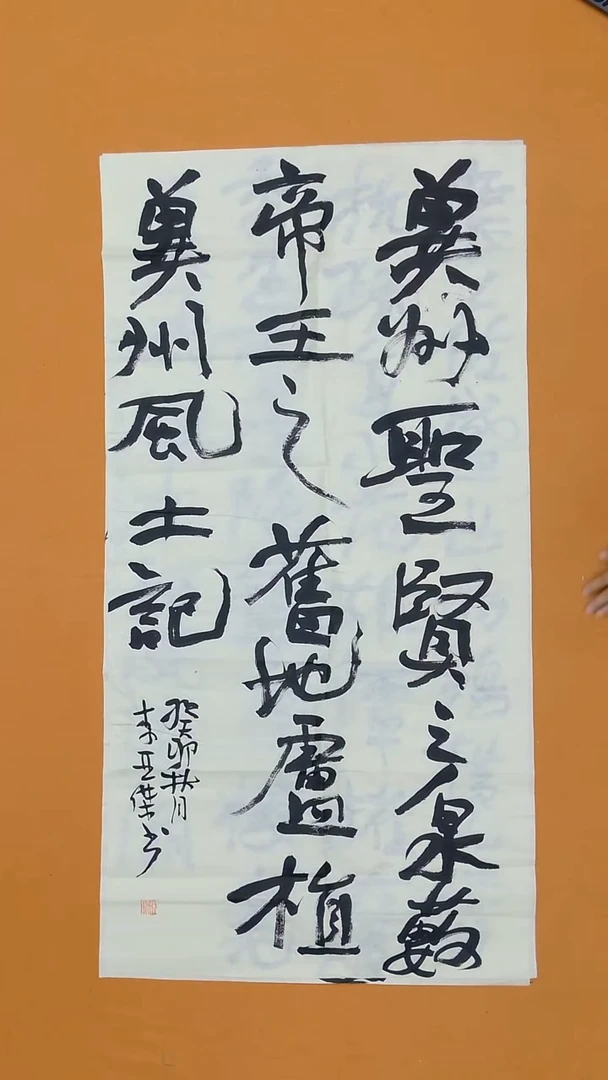 冀州聖賢之泉藪
帝王之舊地盧植
冀州風土記
癸卯秋月
李亞傑书